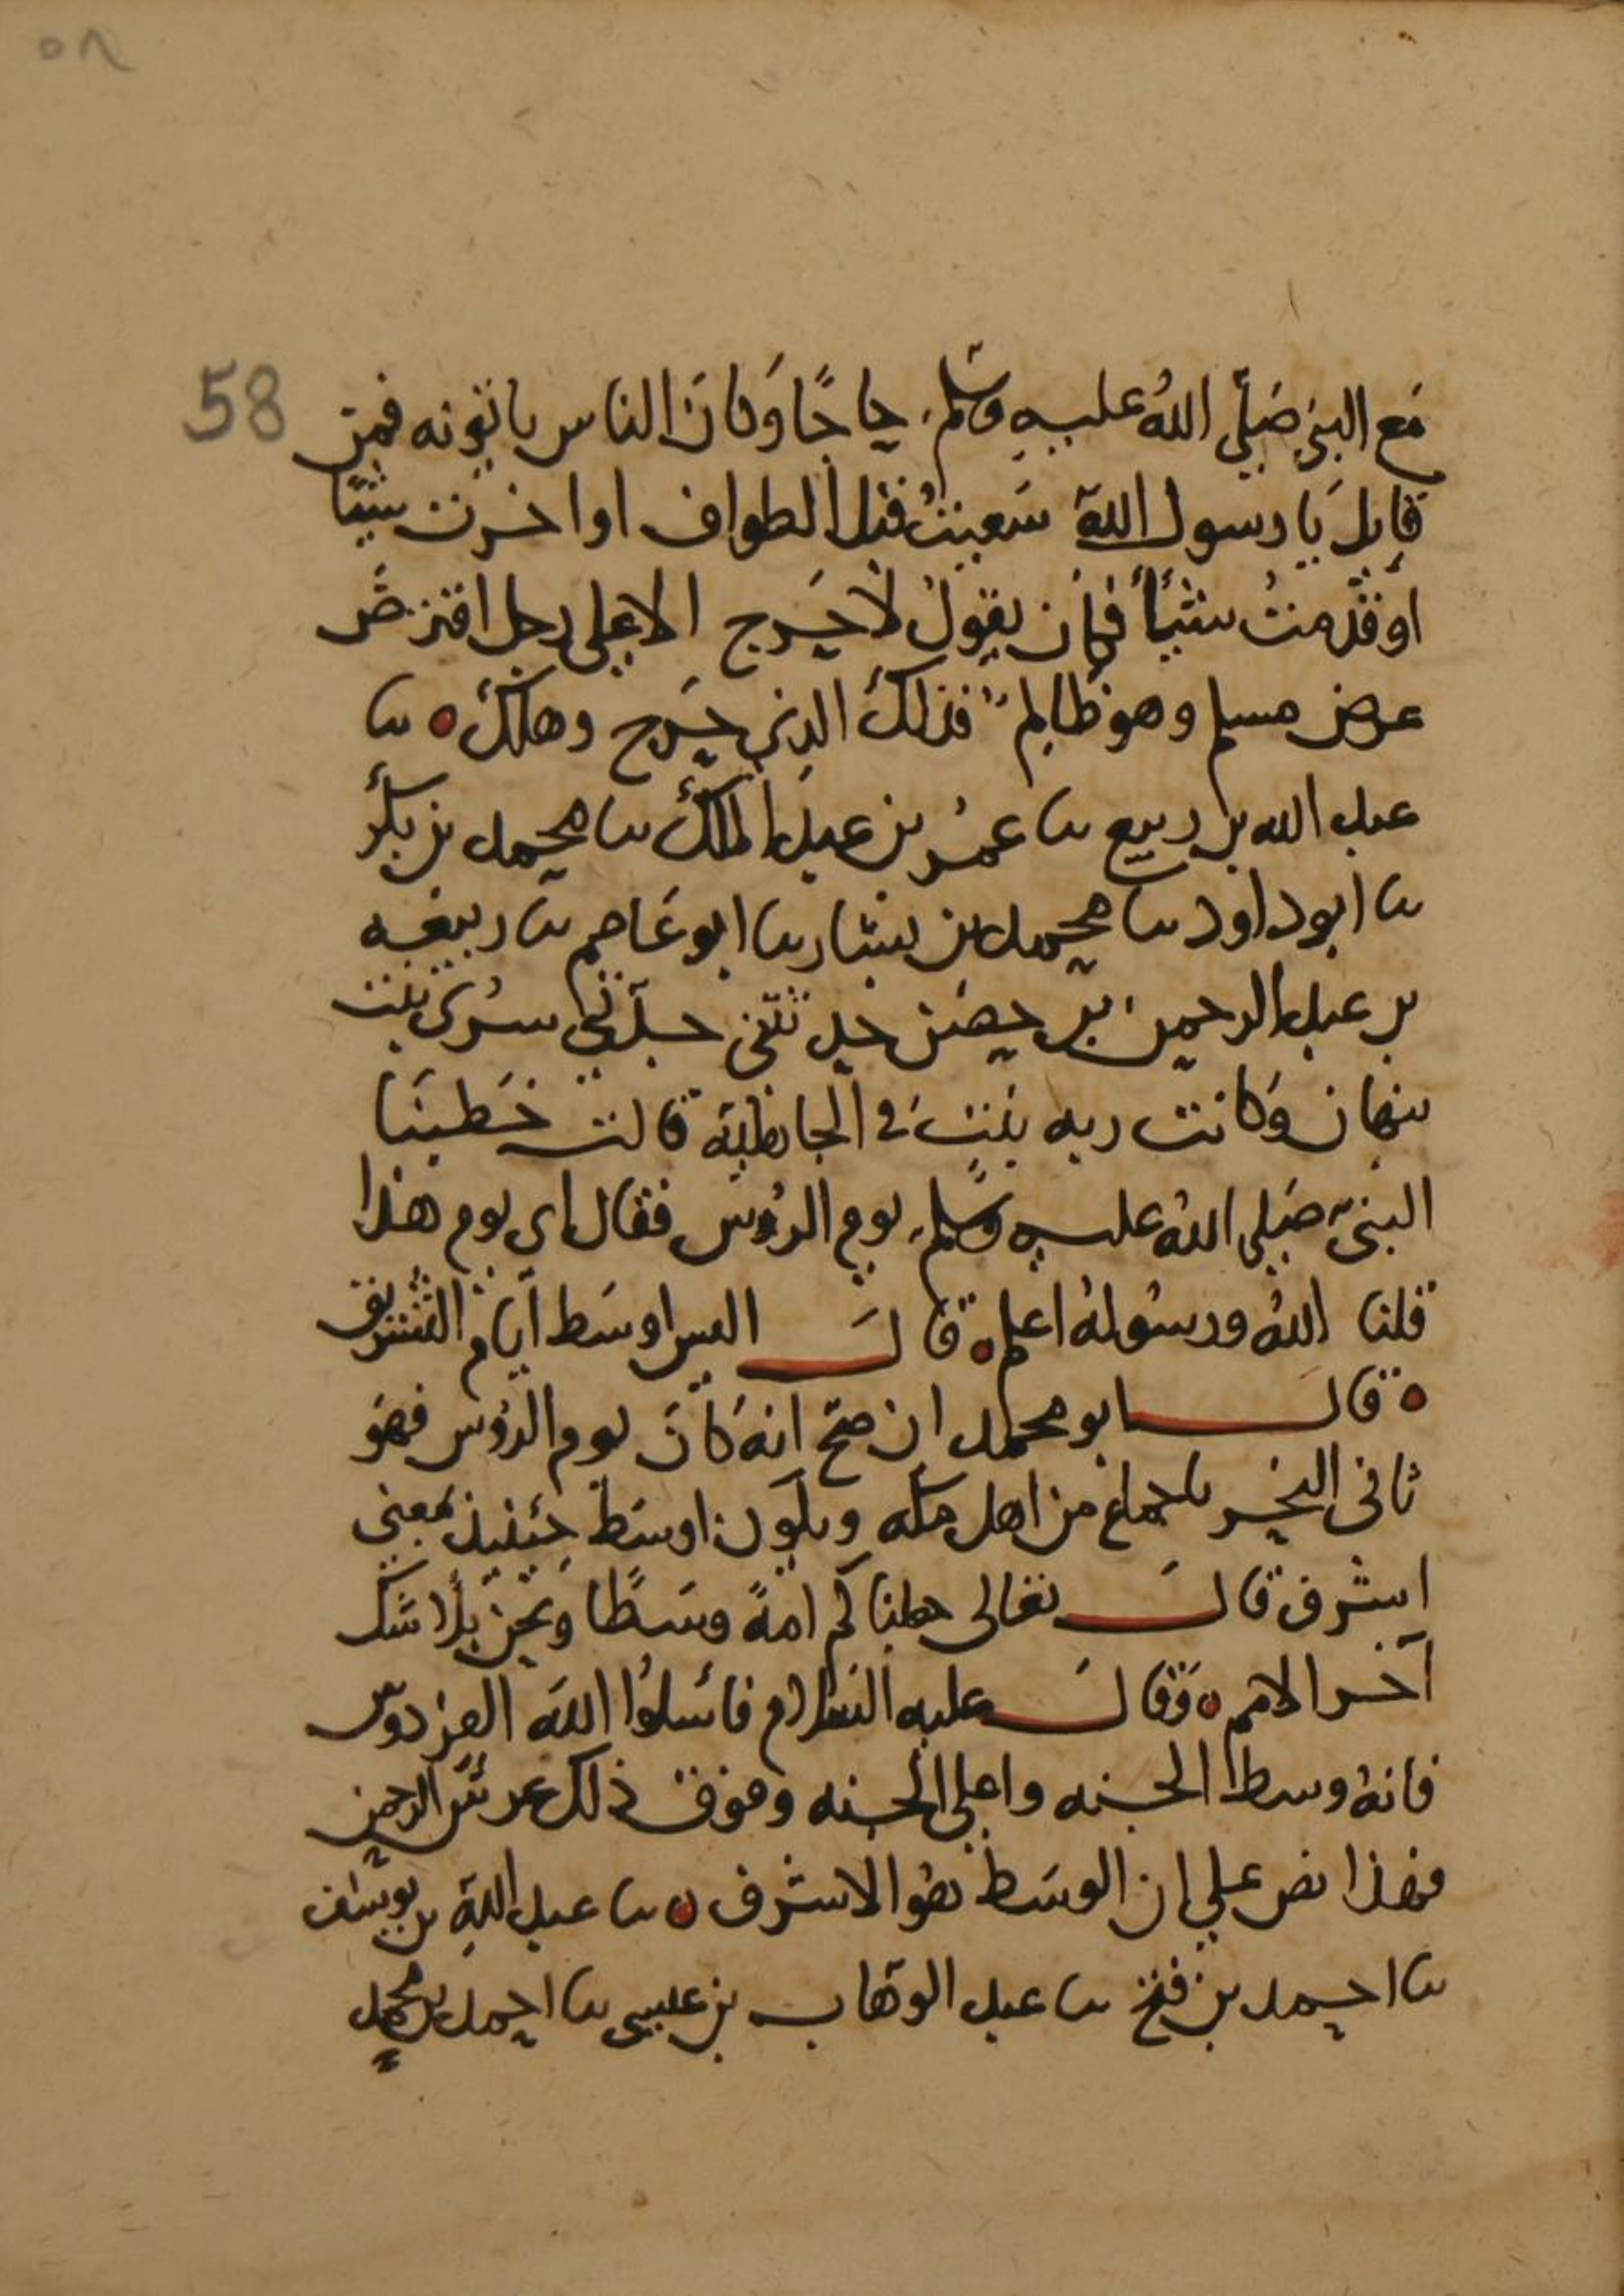 ٥٨
58
مَع النبي صَلّى اللهُ عليهِ وسَلم، حاجًا وَكانَ الناس ياتونه فمن
قايل يَا رسول اللهِ سَعيتُ قبل الطواف او اخرت شيًا
اوقدّمتُ شيئًا فكان يقولُ لا حَرج الا على رجل اقترضَ
عرض مسلم وهو ظالم فذلك الذي حَرج وهلك ٥ ثنا
عبد الله بن ربيع ثنا عمُر بن عبد الملك ثنا محمد بن بكر
ثنا ابو داود ثنا محمد بن بشار ثنا ابو عَاصم ثنا ربيعه
بن عبد الرحمن بن حصن حدثتني جدّتي سرى بنت
نبهان وَكانت ربه بَيت في الجاهلية قالت خَطبنَا
النبيّ صَلى اللهُ عليهِ وسَلم، يوم الرُوس فقال اي يوم هذا
قلنا اللهُ ورسُولهُ اعلم ٥ قالَ اليس اوسَط ايام التشريق
٥ قال ابو محمد ان صَح انهُ كانَ يوم الروس فهوَ
ثانى النحر باجماع من اهل مكه ويكون اوسَط حينيذ بمعنى
اشرف قالَ تعالى جعلناكم امةً وسَطًا ونحن بلا شك
آخر الامم ٥ وَقالَ عليه السَلام فاسَلوُا اللهَ الفردوس
فانهُ وسط الجنه واعلى الجنه وفوق ذلك عرش الرحمن
فهذا نص على ان الوسَط هوَ الاشرف ٥ ثنا عبد اللهِ بن يوسف
ثنا احمد بن فتح ثنا عبد الوَهاب بن عيسى ثنا احمد بن محمد